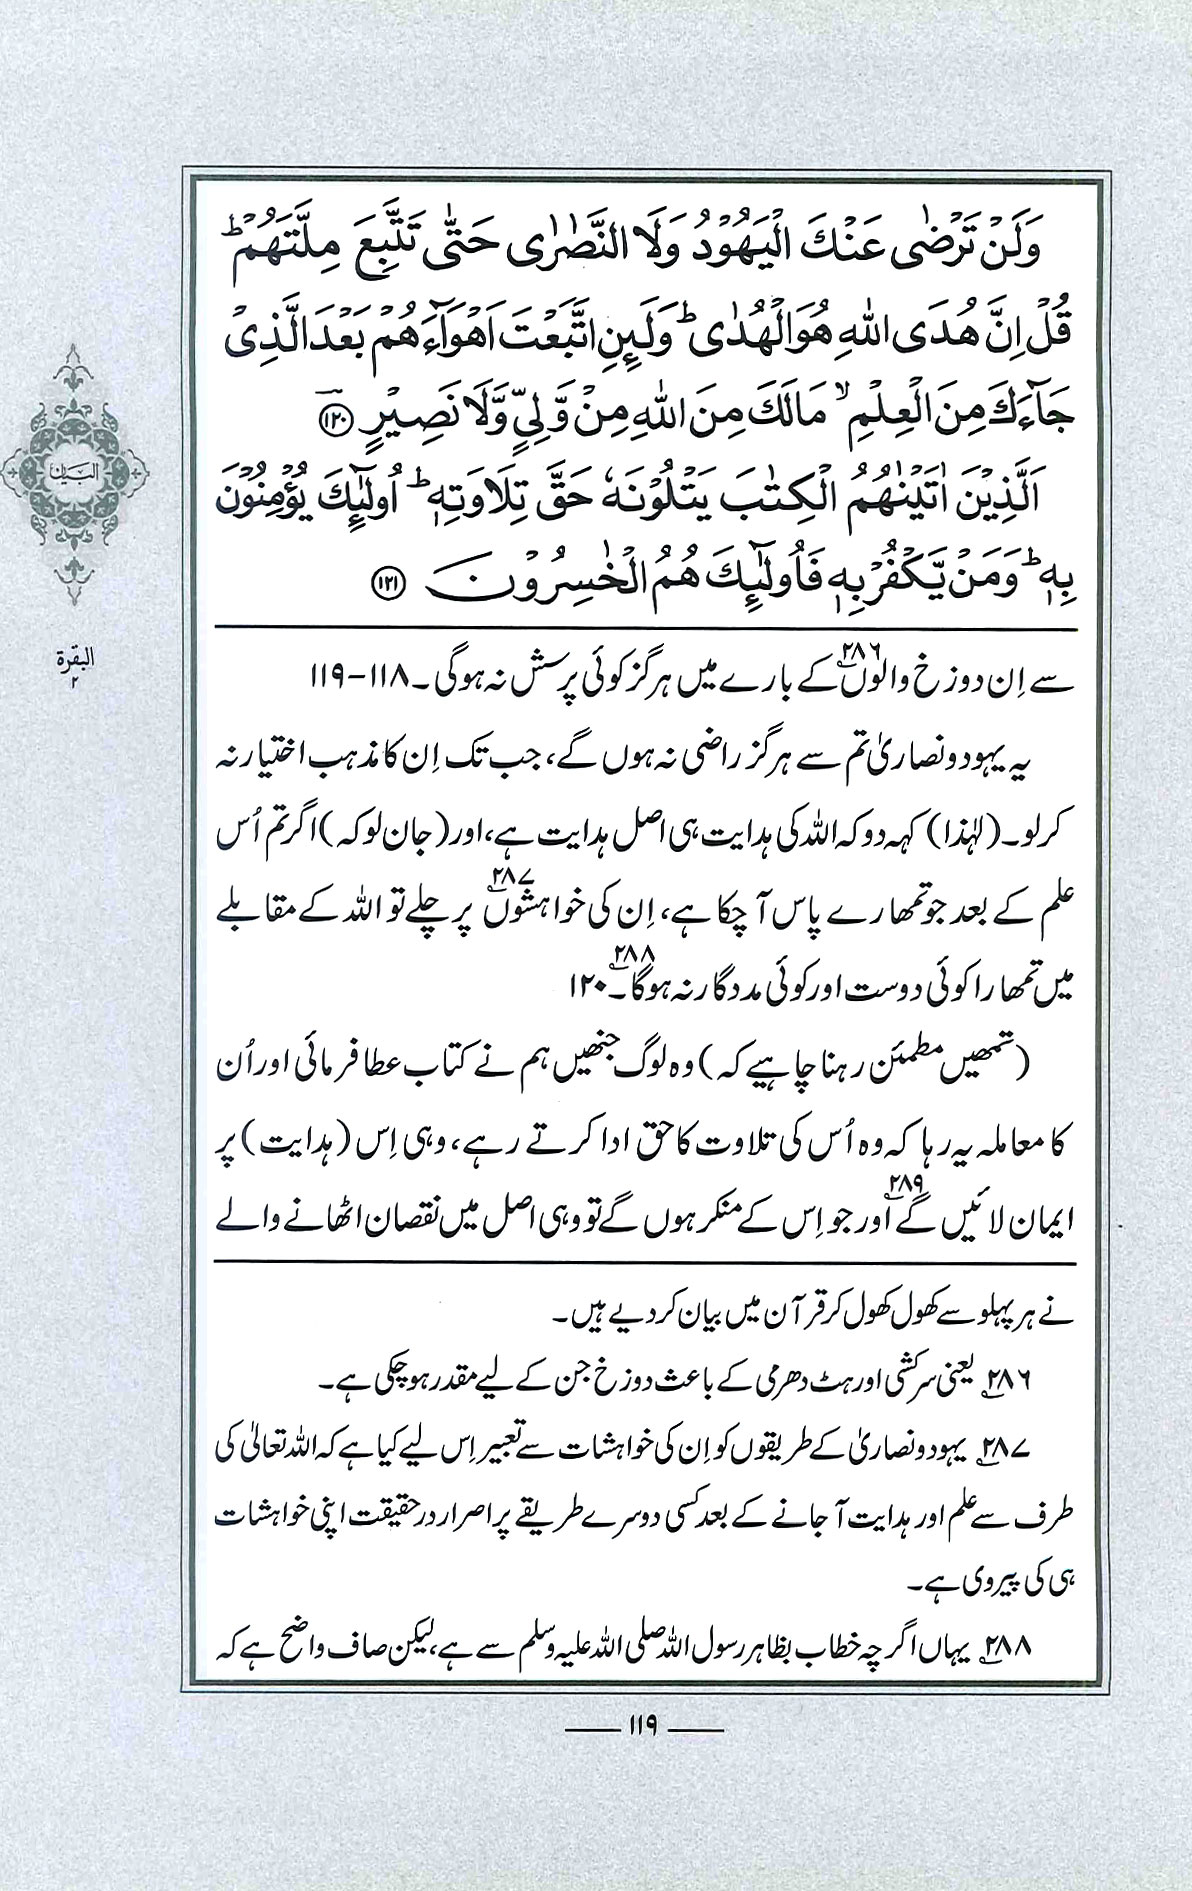 وَلَنۡ تَرۡضٰى عَنۡكَ الۡيَهُوۡدُ وَلَا النَّصٰرٰى حَتّٰى تَتَّبِعَ مِلَّتَهُمۡ ؕ
قُلۡ اِنَّ هُدَى اللّٰهِ هُوَ الۡهُدٰى ؕ وَلَئِنِ اتَّبَعۡتَ اَهۡوَآءَهُمۡ بَعۡدَ الَّذِىۡ
جَآءَكَ مِنَ الۡعِلۡمِ ۙ مَا لَكَ مِنَ اللّٰهِ مِنۡ وَّلِىٍّ وَّلَا نَصِيۡرٍ ﴿۱۲۰﴾
اَلَّذِيۡنَ اٰتَيۡنٰهُمُ الۡكِتٰبَ يَتۡلُوۡنَهٗ حَقَّ تِلَاوَتِهٖ ؕ اُولٰٓئِكَ يُؤۡمِنُوۡنَ
بِهٖ ؕ وَمَنۡ يَّكۡفُرۡ بِهٖ فَاُولٰٓئِكَ هُمُ الۡخٰسِرُوۡنَ ﴿۱۲۱﴾
البیان
البقرۃ
۲
سے اِن دوزخ والوں۲۸۶ کے بارے میں ہرگز کوئی پرسش نہ ہوگی۔ ۱۱۸-۱۱۹
یہ یہود و نصاریٰ تم سے ہرگز راضی نہ ہوں گے، جب تک اِن کا مذہب اختیار نہ
کرلو۔ (لہٰذا) کہہ دو کہ اللہ کی ہدایت ہی اصل ہدایت ہے، اور (جان لو کہ) اگر تم اُس
علم کے بعد جو تمھارے پاس آ چکا ہے، اِن کی خواہشوں۲۸۷ پر چلے تو اللہ کے مقابلے
میں تمھارا کوئی دوست اور کوئی مددگار نہ ہوگا۔۲۸۸ ۱۲۰
(تمھیں مطمئن رہنا چاہیے کہ) وہ لوگ جنھیں ہم نے کتاب عطا فرمائی اور اُن
کا معاملہ یہ رہا کہ وہ اُس کی تلاوت کا حق ادا کرتے رہے، وہی اِس (ہدایت) پر
ایمان لائیں گے۲۸۹ اور جو اِس کے منکر ہوں گے تو وہی اصل میں نقصان اٹھانے والے
نے ہر پہلو سے کھول کھول کر قرآن میں بیان کر دیے ہیں۔
۲۸۶ یعنی سرکشی اور ہٹ دھرمی کے باعث دوزخ جن کے لیے مقدر ہو چکی ہے۔
۲۸۷ یہود و نصاریٰ کے طریقوں کو اِن کی خواہشات سے تعبیر اِس لیے کیا ہے کہ اللہ تعالیٰ کی
طرف سے علم اور ہدایت آ جانے کے بعد کسی دوسرے طریقے پر اصرار درحقیقت اپنی خواہشات
ہی کی پیروی ہے۔
۲۸۸ یہاں اگرچہ خطاب بظاہر رسول اللہ صلی اللہ علیہ وسلم سے ہے، لیکن صاف واضح ہے کہ
۱۱۹